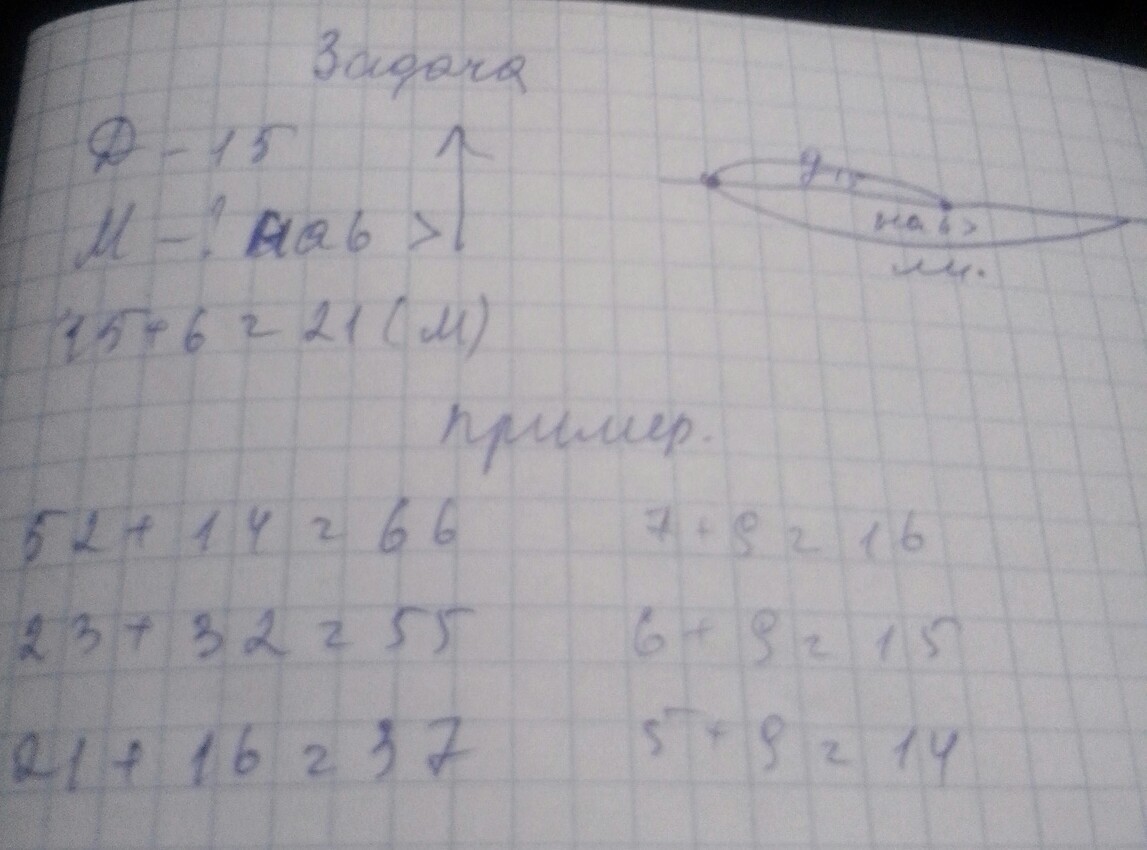 Задача
Д - 15
М - ? на 6 >
Д 15
на 6 >
м.
15 + 6 = 21 (М)
пример.
52 + 14 = 66
7 + 9 = 16
23 + 32 = 55
6 + 9 = 15
21 + 16 = 37
5 + 9 = 14